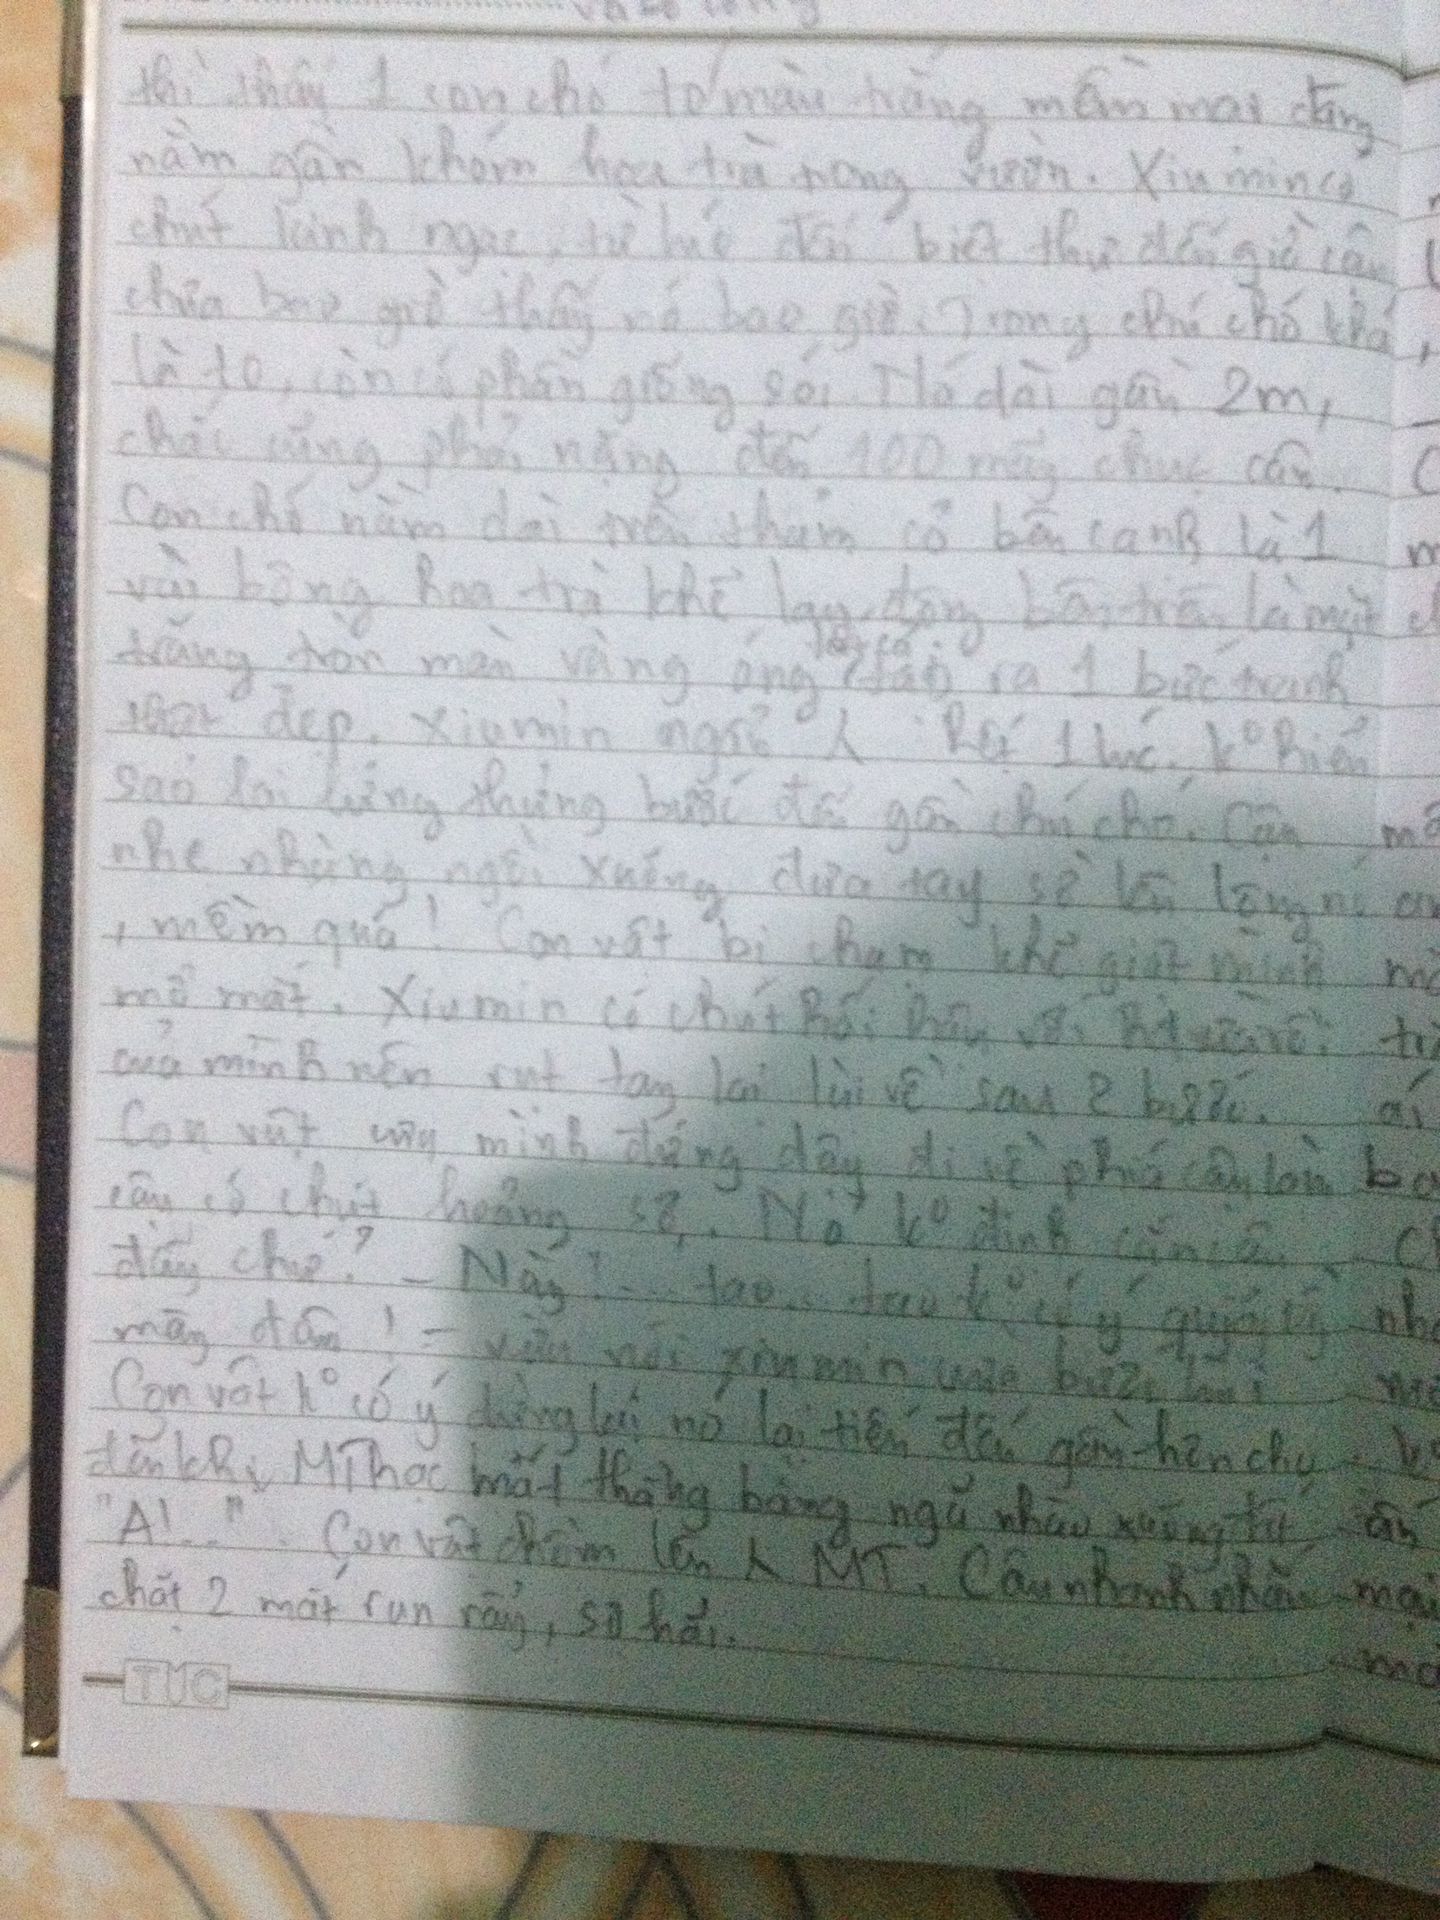 thì thấy 1 con chó to màu trắng mần mai đang
nằm gần khóm hoa trà trong vườn. Xiumin có
chút kinh ngạc, từ lúc đến biệt thự đến giờ cậu
chưa bao giờ thấy nó bao giờ. Trông chú chó khá
là to, còn có phần giống sói. Nó dài gần 2m,
chắc cũng phải nặng đến 100 mấy chục cân.
Con chó nằm dài trên thảm cỏ bên cạnh là 1
vài bông hoa trà khẽ lay động bên trên là mặt
trăng tròn màu vàng óng
tất cả
tạo ra 1 bức tranh
đẹp. Xiumin ngẩn hết 1 lúc. kº hiểu
sao lại lửng thửng bước đến gần chú chó. Cậu
nhẹ nhàng ngồi xuống đưa tay sờ lên lông nó
, mềm quá! Con vật bị chạm khẽ giật mình
mở mắt. Xiumin có chút hối hận với
của mình nên rụt tay lại lùi về sau 2 bước.
Con vật mình đứng dậy đi về phía cậu làm
cậu có chút hoảng sợ. Nó kº định cắn cậu
đấy chứ? - Này!... tao.. tao kº có ý quấy rầy
mày đâu! - vừa nói xiumin vừa bước lùi
Con vật kº có ý dừng lại nó lại tiến đến gần hơn chụ
đến khi MThạc mất thăng bằng ngã nhào xuống đất
"A!..". Con vật chồm lên MT. Cậu nhanh nhắm
chặt 2 mắt run rẩy, sợ hãi.
TUC